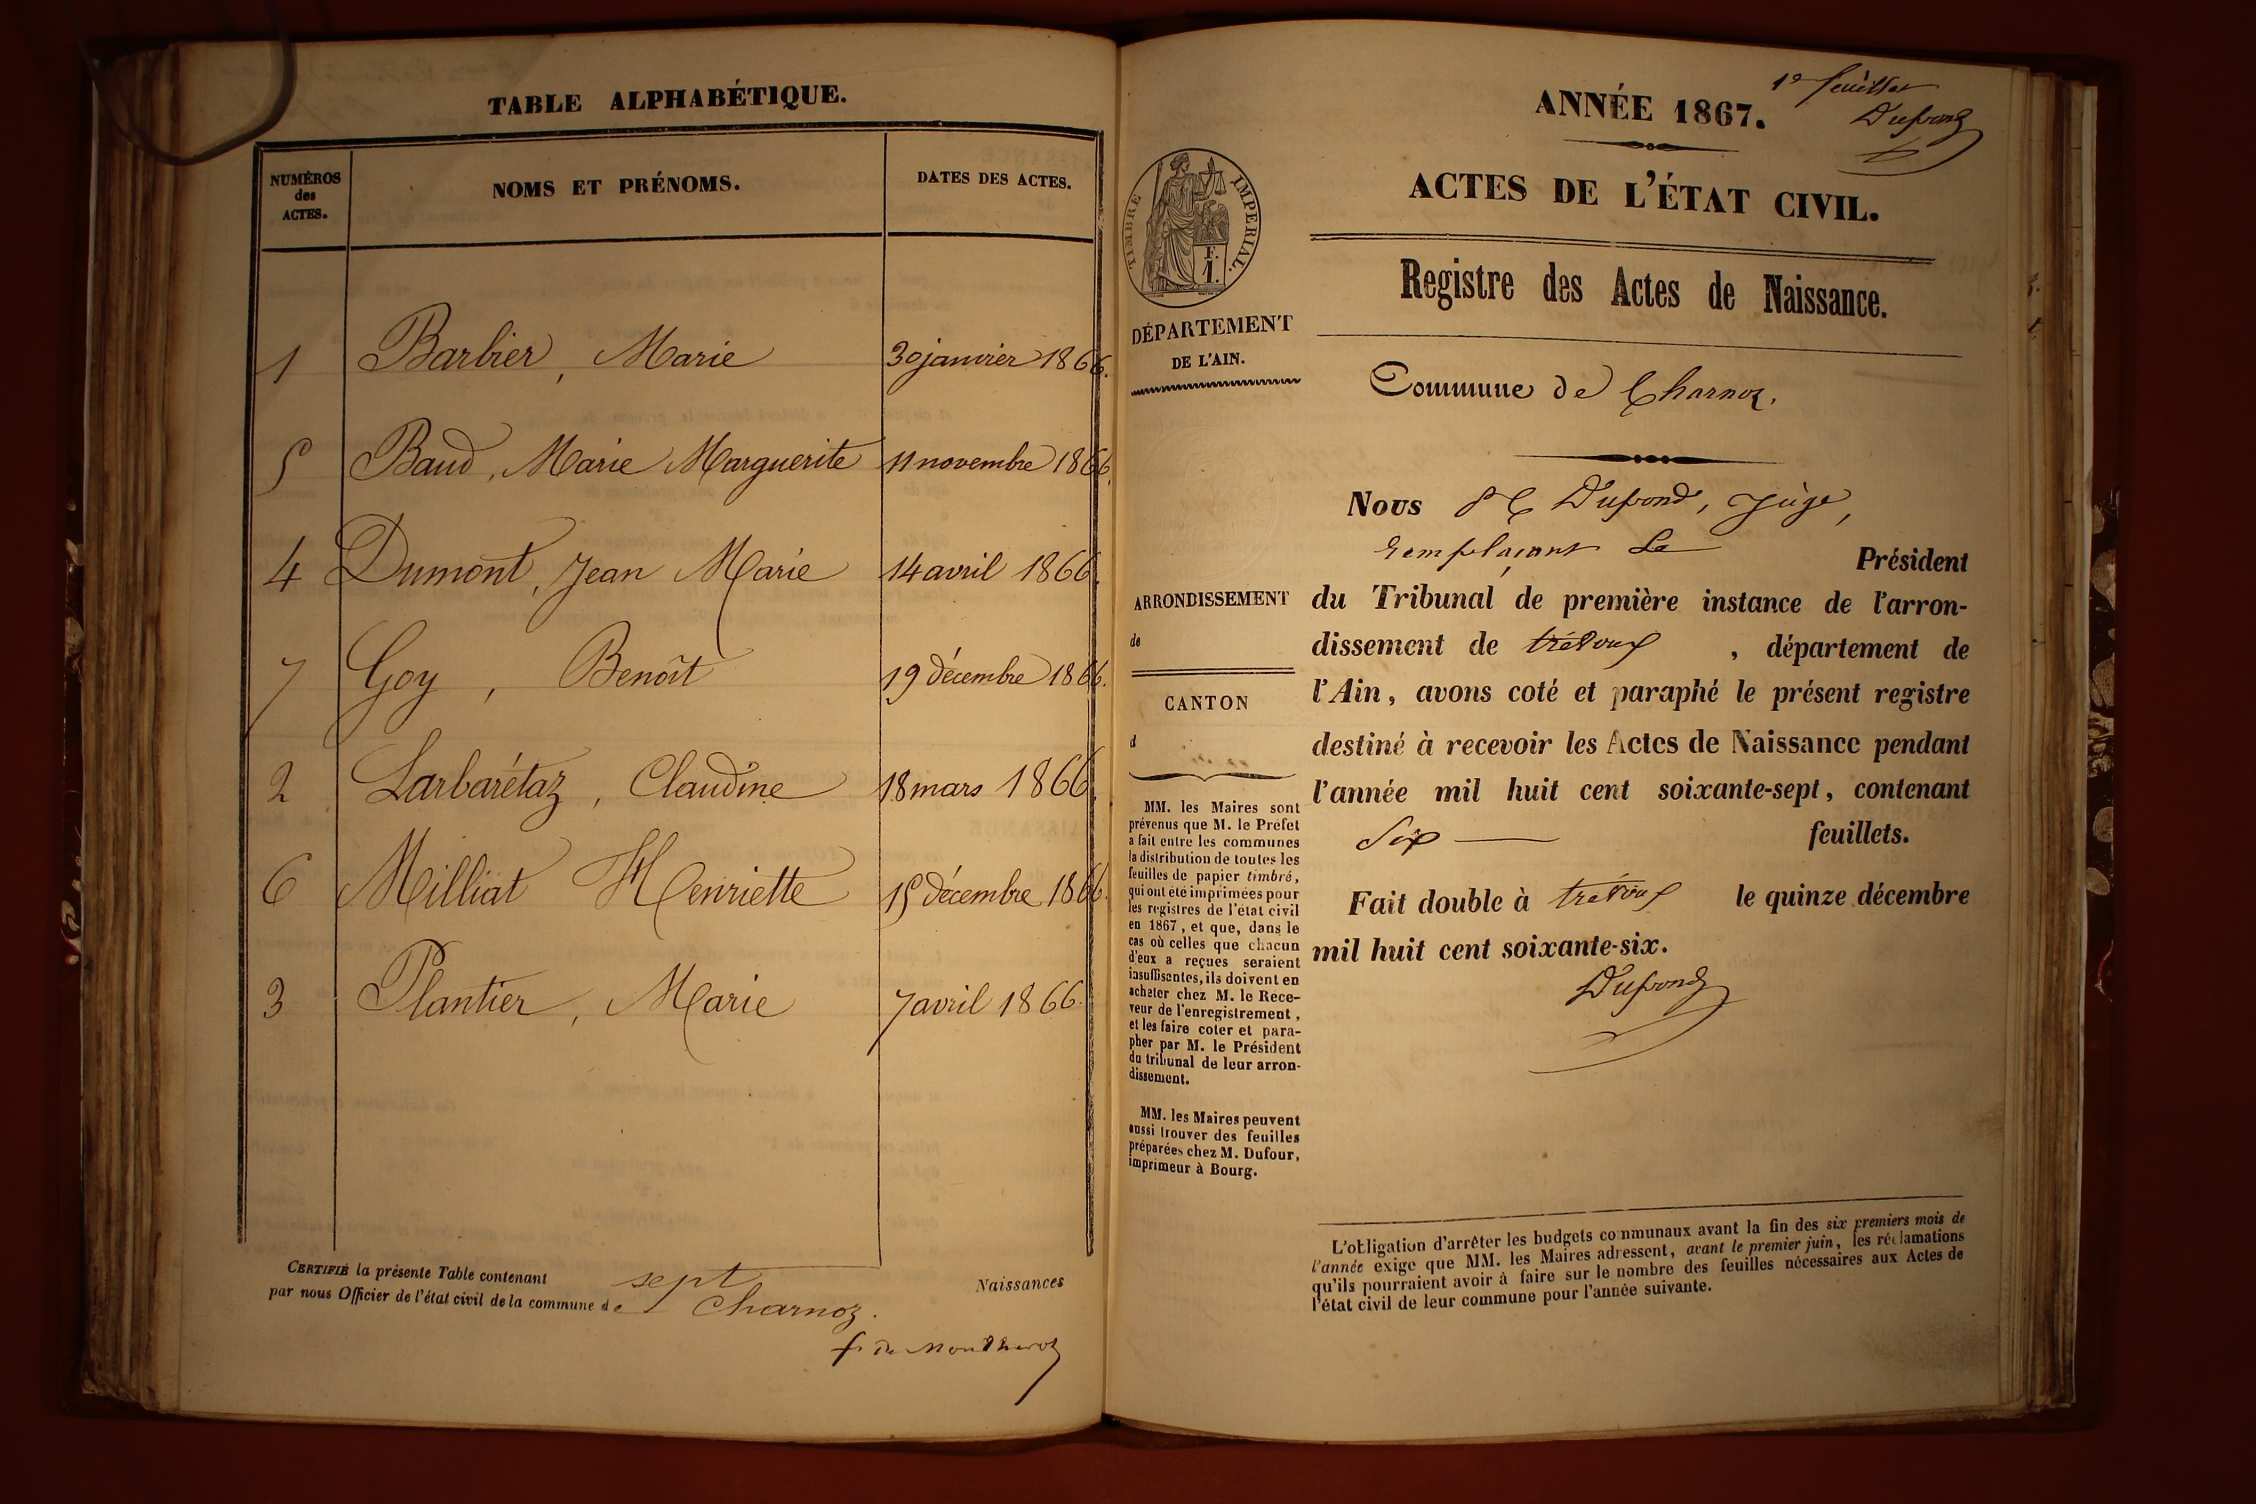 TABLE ALPHABÉTIQUE.
NUMÉROS
des
ACTES.
NOMS ET PRÉNOMS.
DATES DES ACTES.
1 Barbier, Marie 30 janvier 1866.
5 Baud, Marie Marguerite 11 novembre 1866.
4 Dumont, Jean Marie 14 avril 1866.
7 Goy, Benoît 19 décembre 1866.
2 Larbarétaz, Claudine 18 mars 1866.
6 Milliat Henriette 15 décembre 1866.
3 Plantier, Marie 7 avril 1866.
CERTIFIÉ la présente Table contenant sept Naissances
par nous Officier de l'état civil de la commune de Charnoz.
1er feuillet
Dupond
ANNÉE 1867.
ACTES DE L'ÉTAT CIVIL.
TIMBRE IMPERIAL.
F.
1.
DÉPARTEMENT
DE L'AIN.
ARRONDISSEMENT
de
CANTON
d
MM. les Maires sont
prévenus que M. le Préfet
a fait entre les communes
la distribution de toutes les
feuilles de papier timbré,
qui ont été imprimées pour
les registres de l'état civil
en 1867, et que, dans le
cas où celles que chacun
d'eux a reçues seraient
insuffisantes, ils doivent en
acheter chez M. le Rece-
veur de l'enregistrement,
et les faire coter et para-
pher par M. le Président
du tribunal de leur arron-
dissement.
MM. les Maires peuvent
aussi trouver des feuilles
préparées chez M. Dufour,
imprimeur à Bourg.
Registre des Actes de Naissance.
Commune de Charnoz.
Nous Dupond, juge,
remplaçant le Président
du Tribunal de première instance de l'arron-
dissement de trévoux, département de
l'Ain, avons coté et paraphé le présent registre
destiné à recevoir les Actes de Naissance pendant
l'année mil huit cent soixante-sept, contenant
Six feuillets.
Fait double à trévoux le quinze décembre
mil huit cent soixante-six.
Dupond
L'obligation d'arrêter les budgets communaux avant la fin des six premiers mois de
l'année exige que MM. les Maires adressent, avant le premier juin, les réclamations
qu'ils pourraient avoir à faire sur le nombre des feuilles nécessaires aux Actes de
l'état civil de leur commune pour l'année suivante.